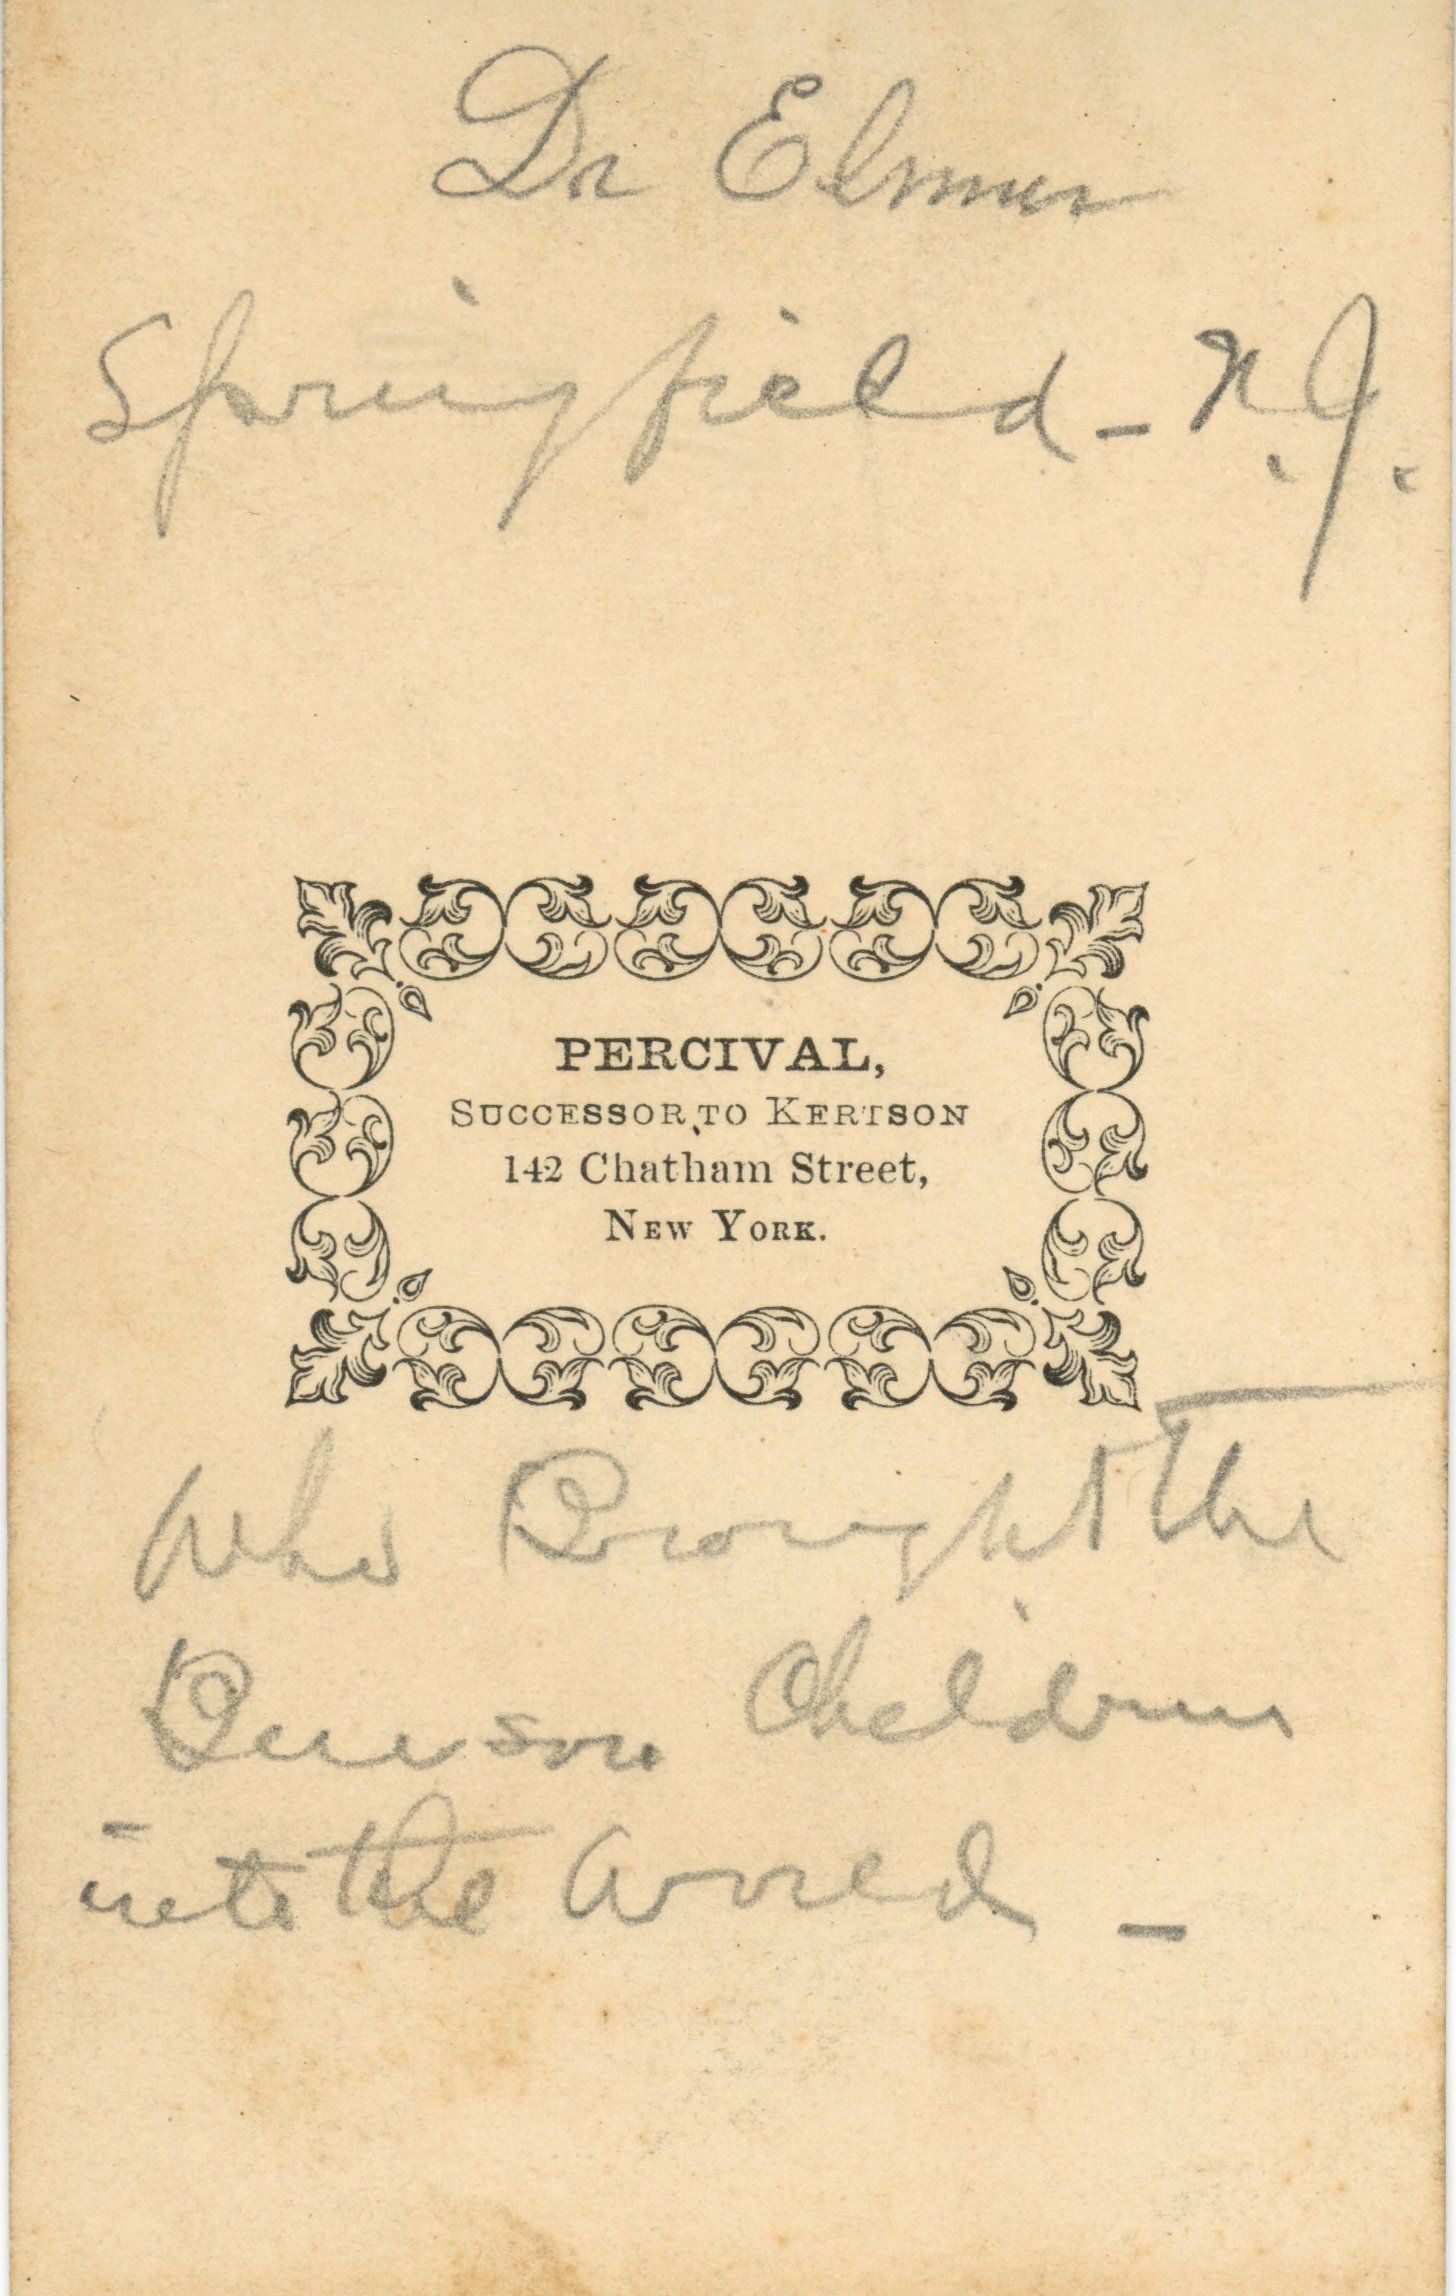 Dr Elmer
Springfield - N.J.
PERCIVAL,
SUCCESSOR TO KERTSON
142 Chatham Street,
NEW YORK.
Who Brought the
Children
into the World -